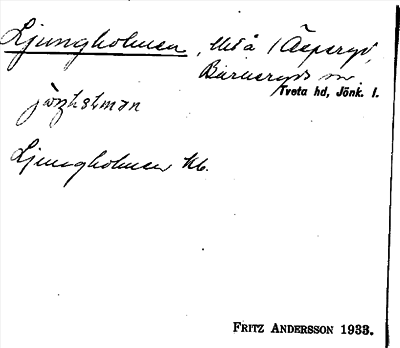 Ljungholmen, Utå i Äsperyd,
Barnaryds sn,
Tveta hd, Jönk. l.
Ljungholmen Kb.
FRITZ ANDERSSON 1933.